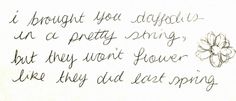 i brought you daffodils
in a pretty string,
but they won't flower
like they did last spring